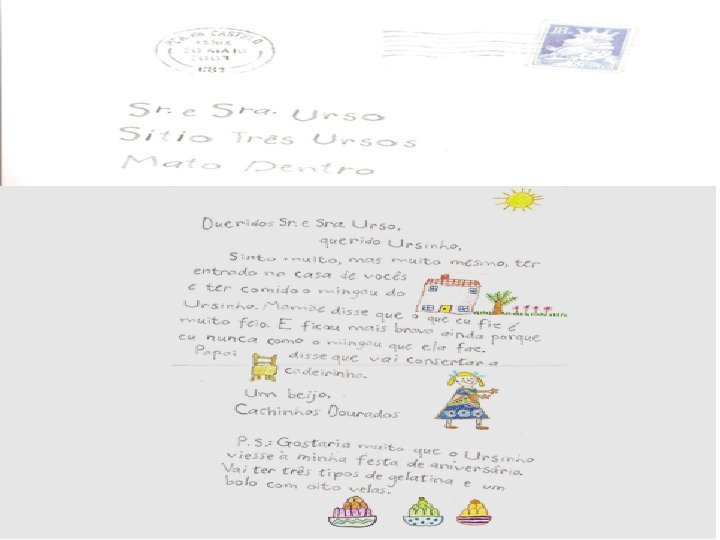 PÇA do CASTELO
20 MAIO
2007
Sr. e Sra. Urso
Sítio Três Ursos
Mato Dentro
Queridos Sr. e Sra. Urso,
querido Ursinho,
Sinto muito, mas muito mesmo, ter
entrado na casa de vocês
e ter comido o mingau do
Ursinho. Mamãe disse que o que eu fiz é
muito feio. E ficou mais brava ainda porque
eu nunca como o mingau que ela faz.
Papai disse que vai consertar a
cadeirinha.
Um beijo,
Cachinhos Dourados
P.S.: Gostaria muito que o Ursinho
viesse à minha festa de aniversário.
Vai ter três tipos de gelatina e um
bolo com oito velas.